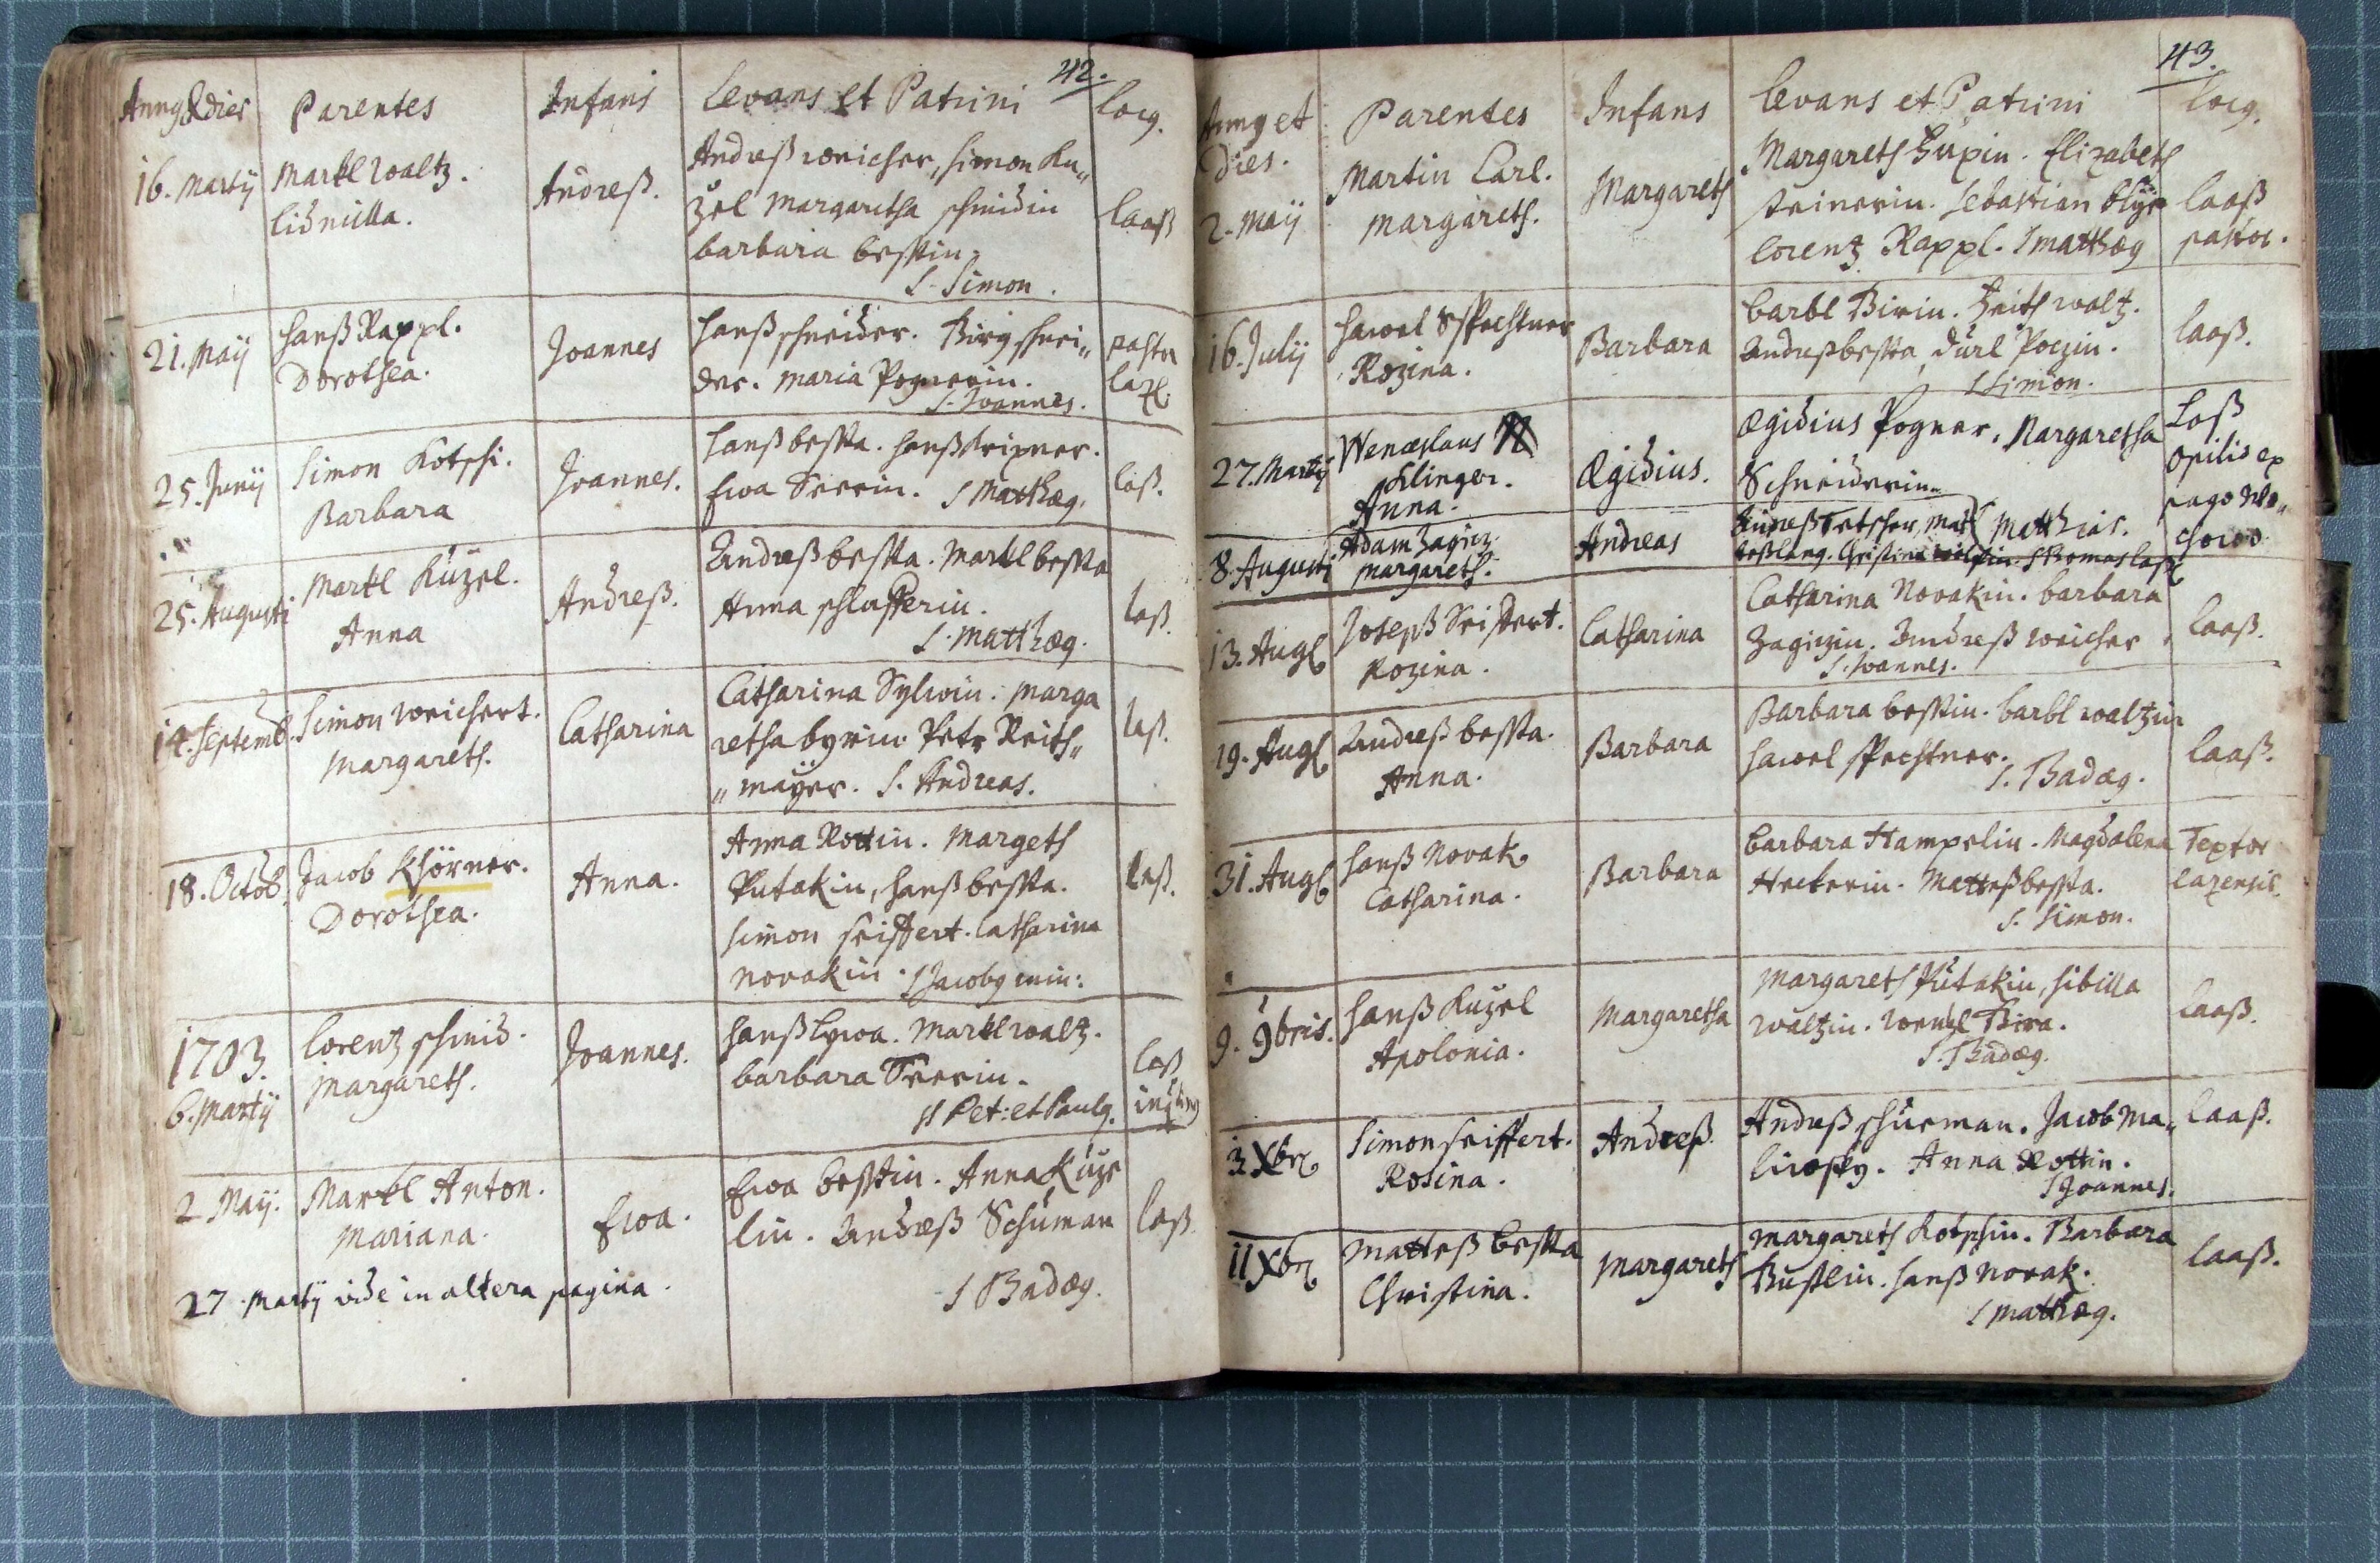 42.
Annus & dies Parentes Infans Levans et Patrini Locus.
16. Martij
Markl Waltz.
Lidmilla.
Andreß.
Andreß Weicher, Simon Ku„
zel Margaretha Schmidin
Barbara Besstin.
S. Simon.
Laaß
21. Maij
Hanß Rappl.
Dorothea.
Joannes
Hanß Schneider. Birg Schnei„
der. Maria Pognerin.
S. Joannes.
pastor
25. Junij
Simon Kotschi.
Barbara
Joannes.
Hanß Bessta. Hanß
Ewa S. Matthæus.
Laß.
25. Augusti
Markl Kuzel.
Anna
Andreß.
Andreß Bessta. Markl Bessta
Anna
S. Matthæus.
Laß.
14. Septemb.
Simon Weichert.
Margareth.
Catharina
Catharina Marga
retha Petr Reith„
„mayer. S. Andreas.
Laß.
18. Octob.
Jacob Khörner.
Dorothea.
Anna.
Anna Rottin. Margeth
Putakin, Hanß Bessta.
Simon Seiffert. Catharina
Novakin. S Jacobus min:
Laß.
1703.
6. Martij
Lorentz Schmid.
Margareth.
Joannes.
Hanß Markl Waltz.
Barbara
SS Pet: et Paulus.
Laß
2 Maij.
Markl Anton.
Mariana.
Ewa.
Ewa Besstin. Anna Kuze
lin. Andreß Schuman
S Badæus.
Laß
27. Martij vide in altera pagina.
43.
Annus et
dies.
Parentes Infans Levans et Patrini Locus.
2. Maij
Martin Carl.
Margareth.
Margareth
Margareth Elizabeth
Steinerin. Sebastian
Lorentz Rappl. S Matthæus
Laaß
pastor.
16. Julij
Hawel Spechtner
Rozina.
Barbara
Barbl Birin. Veith Waltz.
Andreß Bessta, Durl
S Simon.
Laaß.
27. Martij
Wenceslaus
Klinger.
Anna.
Ægidius.
Ægidius Pogner, Margaretha
Schneiderin.
Matthias.
Laß
opilio ex
pago
8. Augusti
Adam
Margareth.
Andreas
Andreß
Christina S Thomas
13. Aug
Joseph Seiffert.
Rozina.
Catharina
Catharina Novakin. Barbara
Andreß Weicher
S. Joannes.
Laaß.
19. Aug
Andreß Bessta.
Anna.
Barbara
Barbara Besstin. Barbl Waltzin
Hawel Spechtner.
S. Badæus.
Laaß.
31. Aug
Hanß Novak
Catharina.
Barbara
Barbara Hampelin. Magdalena
Matteß Bessta.
S. Simon.
Textor
Lazensis.
9. 9bris.
Hanß Kuzel
Apolonia.
Margaretha
Margareth Putakin, Sibilla
Waltzin. Wentzl Bira.
S. Badæus.
Laaß.
3 Xbr
Simon Seiffert.
Rosina.
Andreß
Andreß Schuman. Jacob Ma„
liwsky. Anna Rottin.
S Joannes.
Laaß.
11 Xbr
Matteß Bessta
Christina.
Margareth
Margareth Kotschin. Barbara
Hanß Novak.
S Matthæus.
Laaß.